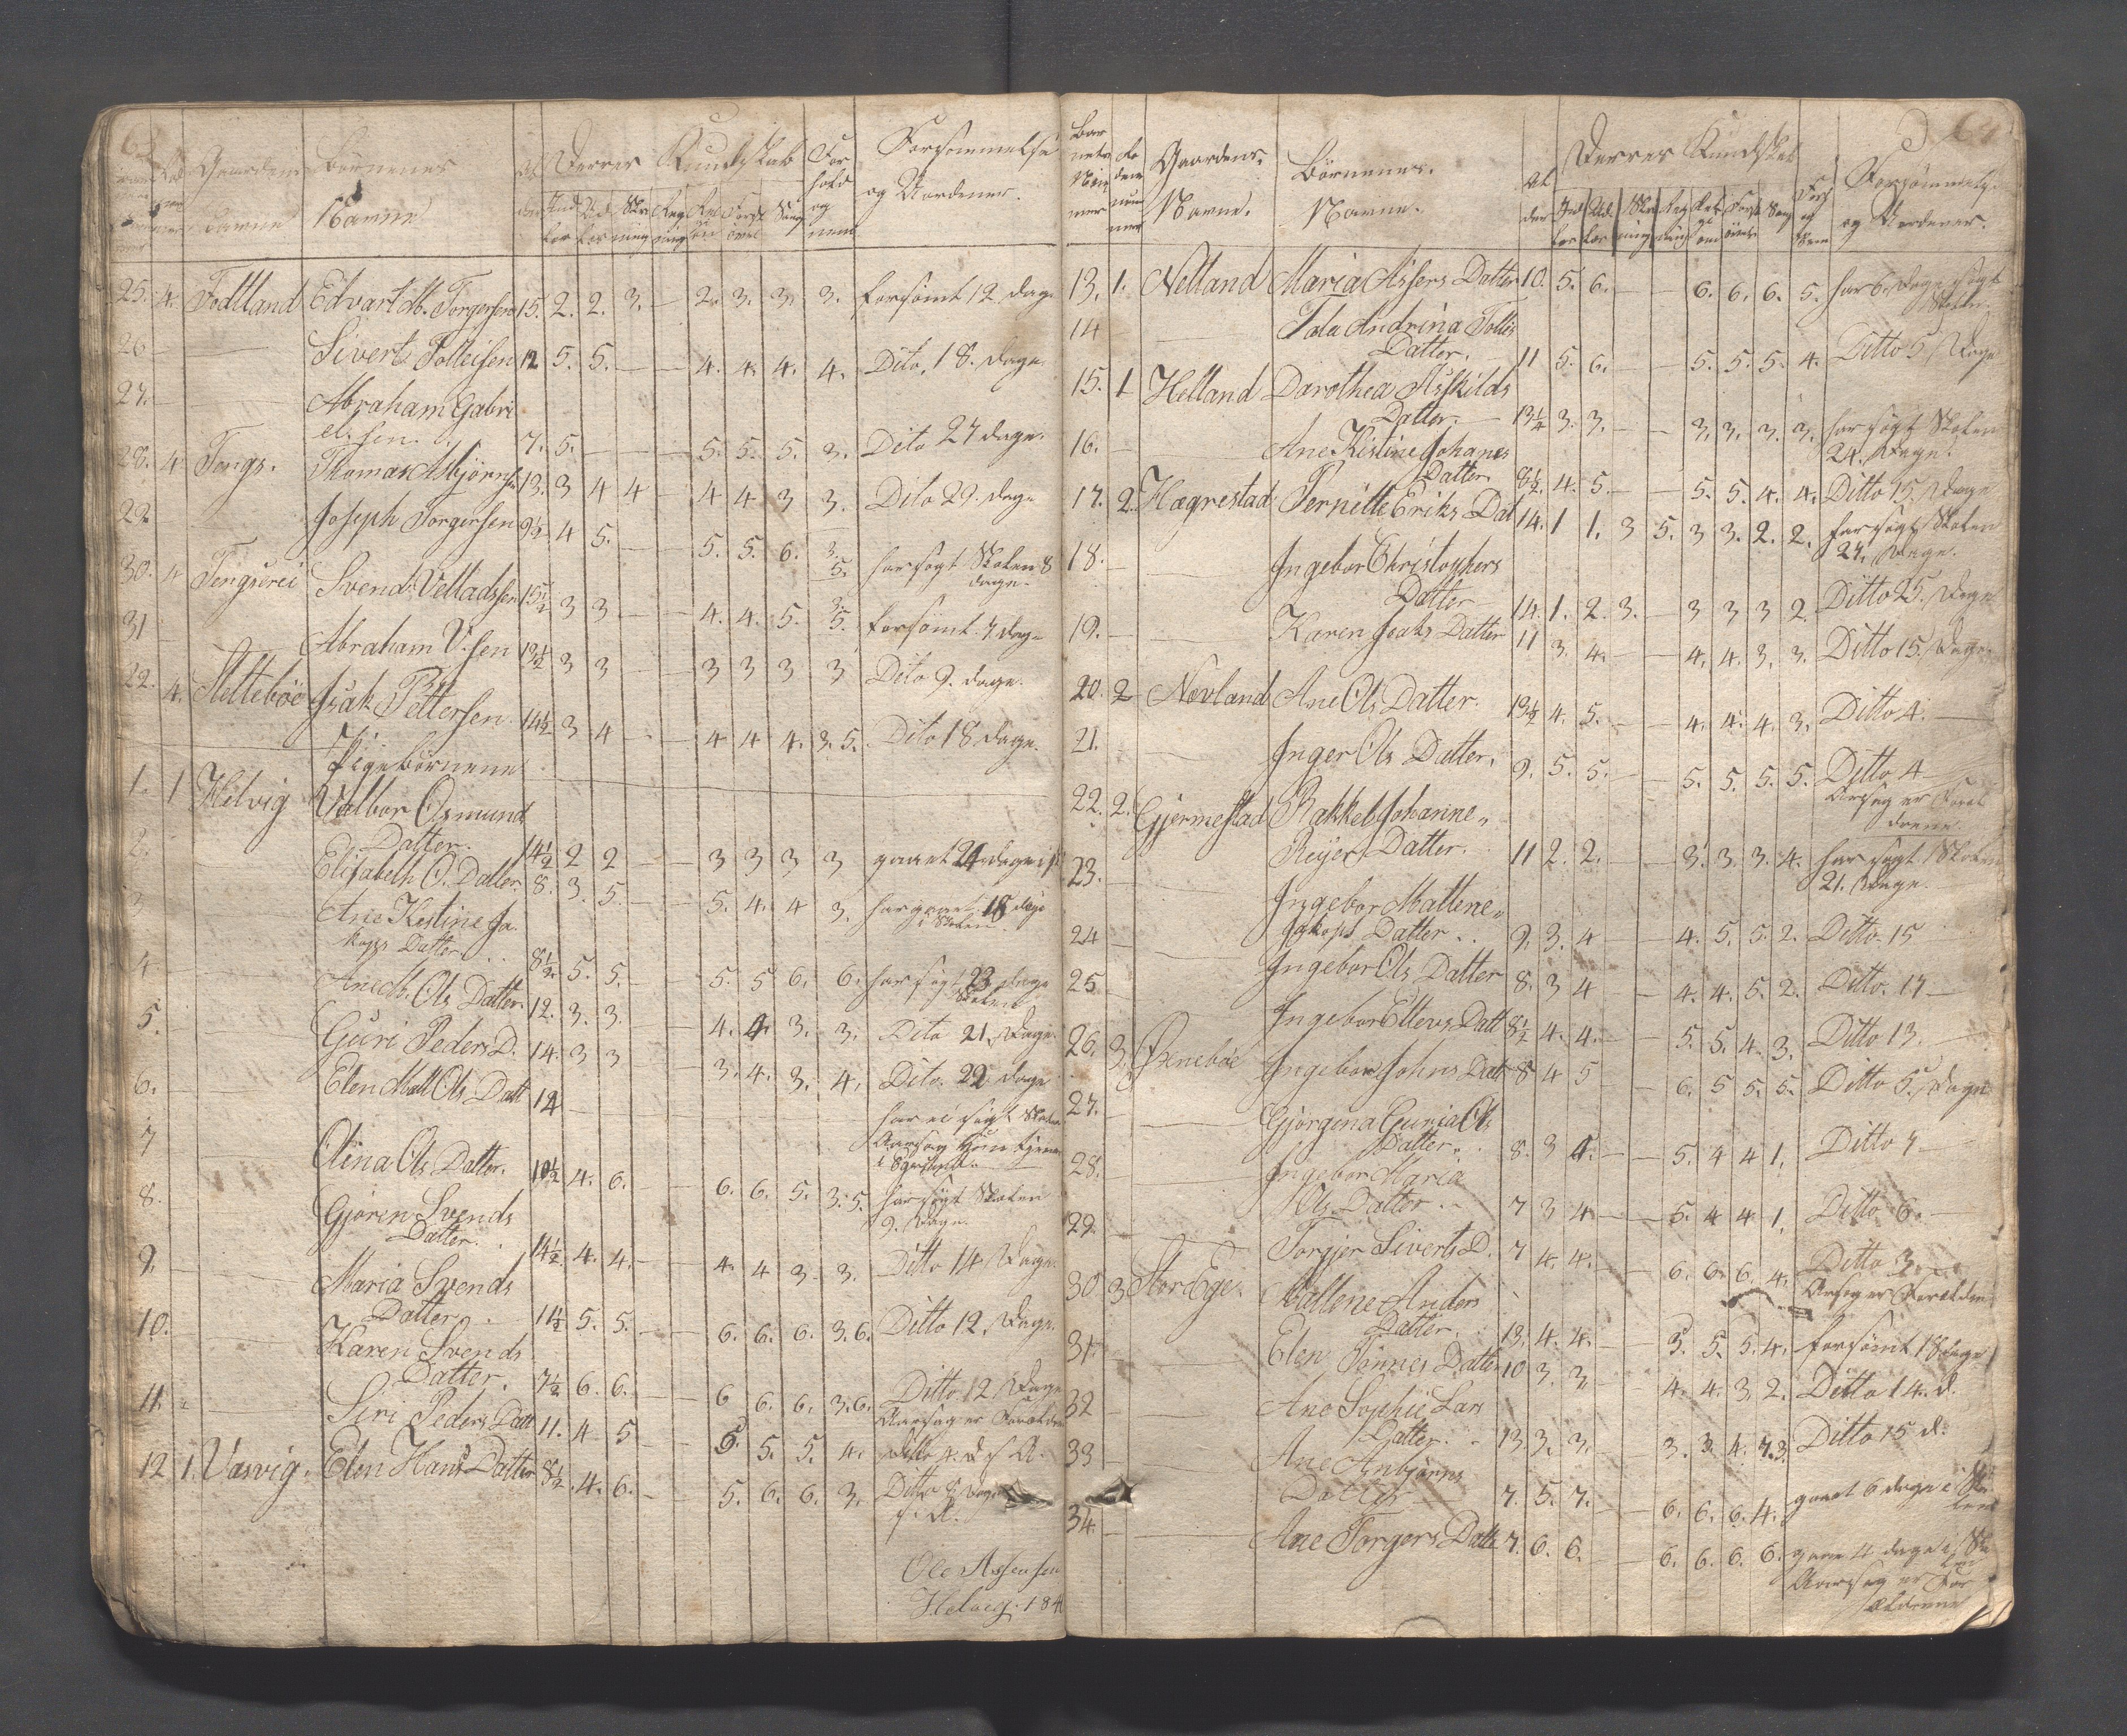 Gaardens Børnenes Al Derres Kundskab For Forsømmelse
Navne Navne der hold og Nordener.
25. 4. Fodtland Edvart M. Torgersen 15. 2. 2. 3. — 2. 3. 3. 3. forsømt 12 dage
26 — Sivert Tolleisen 12 5. 5. — — 4. 4. 4. 4. Dito. 18. dage.
27. — Abraham Gabri
elsen. 7. 5. — — — 5. 5. 5. 3. Dito 27 dage.
28. 4 Tengs. Thomas Asbjørns 13. 3 4 4 — 4 4 3 3. Dito 29. dage
29 — Joseph Torgersen 9½ 4 5. — — 5. 5. 6. 3.5. har søgt Skolen 8
dage.
30. 4 Tengsrei Svend Velladsen 15½ 3 3 — — 4. 4. 5. 3.5. forsømt 7 dage
31 — Abraham V.sen 13½ 3 3 — 3 3 3 3 Dito 9. dage.
4. Slettebøe Isak Pettersen 14½ 3 4 — — 4 4 4. 3. 5. Dito 18 dage.
Pigebørnene
1. 1 Helvig Valbor Osmund
Datter. 14½ 2 2 — — 3 3 3 3 gaaet 24 dage
2. — Elisabeth O. Datter. 8. 3. 5. — — 5. 4. 4 3. har gaaet 18 dage
i Skolen
3 — Ane Kestine Ja
kops Datter 8½. 5. 5. — 5. 5 6. 6. har søgt 23 dage
Skolen
4 — Ane M. Ols Datter. 12. 3. 3. — 4. 4. 3. 3. Dito 21. Dage.
5. — Guri Peders D. 14. 3 3 — 3. 4. 3. 4. Dito. 22 dage
6. — Elen Mall Ols Datt 14 — har ei søgt Skolen
Aarsag Hun tjener
7 — Olina Ols Datter. 10½ 4. 6. — 6. 6. 5. 3. 5. har søgt Skolen
9. Dage.
8. — Gjøren Svends
Datter. 14½. 4. 4. — 4. 4 3. 3. Ditto 14 Dage.
9. — Maria Svends
Datter. 11½ 5. 5. — 6. 6. 6. 3.6. Ditto 12. Dage.
10. — Karen Svends
Datter. 7½ 6. 6. — 6 6. 6. 3.6. Ditto 12 Dage
Aarsag er Foræld
11. — Siri Peders Datt 11. 4 5 — 5. 5. 5. 4. ditto 4. d. f A.
12 1. Vasvig. Elen Hans Datter 8½. 4. 6. — 5. 6. 6. 3. Ditto 8 Dage
f. A.
Ole Assensen
Helvig. 184
Bar
nets
Num
mer Gaardens. Børnenes. Al Derres Kundskab Forsømmelse.
Navne. Navne. der og Nordener.
13. 1. Nelland Maria Assers Datter 10. 5. 6. — — 6. 6. 6. 5. har 6 dage søgt
Skolen.
14 — Tala Andrina Tolleis
Datter. 11 5. 6. — — 5. 5. 5. 4. Ditto 5 Dage
15. 1 Helland Dorothea Asskilds
Datter. — 13¼ 3. 3. — — 3. 3. 3. 3. har søgt Skolen
24. Dage.
16. — Ane Kistine Johanes
Datter 8½. 4. 5. — — 5. 5. 4. 4. Ditto 15. Dage
17. 2. Hægrestad Pernille Eriks Dat 14. 1 1. 3 5. 3 3. 2. 2. har søgt Skolen
27. Dage.
18. — Ingebor Christophers
Datter 14. 1. 2. 3. — 3 3 3 2. Ditto 25. Dage
19. — Karen Isaks Datter 11 3. 4. — — 4. 4. 3. 3. Ditto 15. Dage
20. 2 Nevland Ane Ols Datter. 13½ 4. 5. — — 4. 4. 4. 3. Ditto 4. —
21. — Inger Ols Datter. 9. 5. 5. — — 5. 5. 5. 5. Ditto 4
Arsag er Foræl
drene
22. 2. Gjermestad Rakkel Johanne
Reijer Datter. 11 2. 2. — — 3. 3. 3. 4. har søgt Skolen
21. Dage.
23. — Ingebor Mallene
Jakops Datter. 9. 3. 4 — — 4. 5. 5. 2. Ditto. 15
24 — Ingebor Ols Datter 8. 3 4 — — 4. 4. 5. 2. Ditto. 17 —
25 — Ingebor Ellevs Datt 8½ 4. 4. — — 5. 5. 4. 3. Ditto 13. —
26. 3. Ørnebøe Ingebor Johns Datt 8 4 5 — — 6. 5 5. 5. Ditto 5. Dage
27. — Gjørgina Guria Ols
Datter. 8. 3 4. — — 5. 4 4 1. Ditto 7 —
28. — Ingebor Maria
Ols Datter. 7 3 4 — — 5. 4 4 1. Ditto 6. —
29. — Torgjer Siverts D. 7 4. 4. — — 6. 6. 6. 4. Ditto 3. —
Arsag er Forælden
30 3 Stor Ege. Mallene Anders
Datter. 13. 4. 4. — — 3. 5. 5. 4. forsømt 18 dage
31. — Elen Tønnes Datter 10 3. 3. — — 4. 4. 3. 2. Ditto 14. d.
32 — Ane Sophie Lars
Datter. 13 3. 3. — — 3. 3. 4. 4.3. Ditto 15 d.
33 — Ane Anbjørns
Datter 7. 5. 7. — — 6. 6. 6. 4. gaaet 6 dage i Sko
len
34. — Ane Torgers Datte 7. 6. 6. — — 6. 6. 6. 6. gaaet 4 dage i Sko
Aarsag er For
ældrene